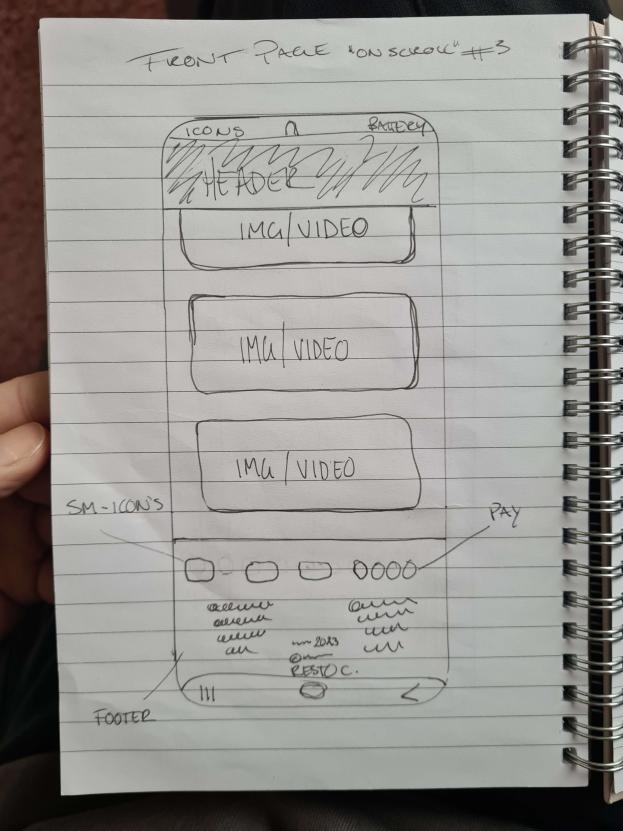 FRONT PAGE "ON SCROLL" #3
ICONS
BATTERY
HEADER
IMG/VIDEO
IMG/VIDEO
IMG/VIDEO
SM-ICON'S
PAY
2023
RESTO C.
FOOTER